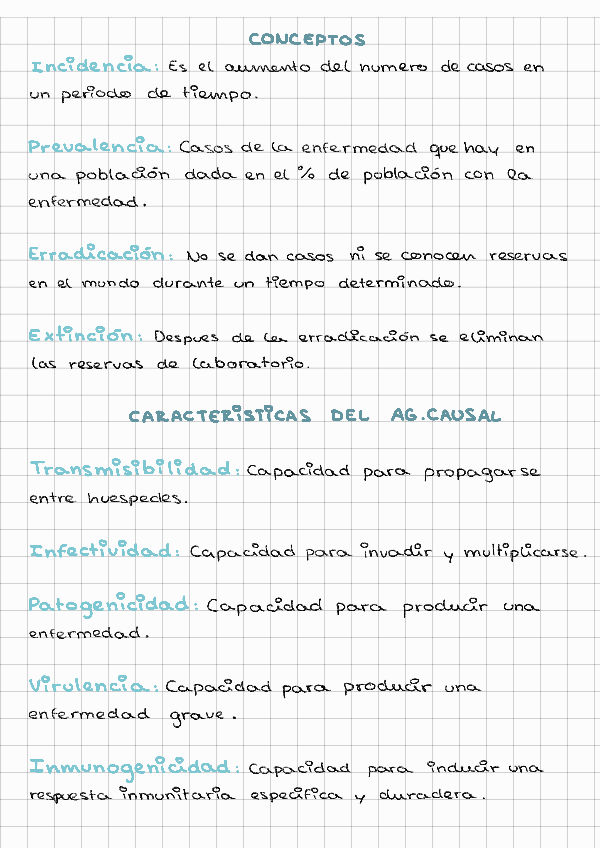 CONCEPTOS
Incidencia: Es el aumento del numero de casos en
un periodo de tiempo.
Prevalencia: Casos de la enfermedad que hay en
una población dada en el % de población con la
enfermedad.
Erradicación: No se dan casos ni se conocen reservas
en el mundo durante un tiempo determinado.
Extinción: Despues de la erradicación se eliminan
las reservas de laboratorio.
CARACTERISTICAS DEL AG.CAUSAL
Transmisibilidad: Capacidad para propagarse
entre huespedes.
Infectividad: Capacidad para invadir y multiplicarse.
Patogenicidad: Capacidad para producir una
enfermedad.
Virulencia: Capacidad para producir una
enfermedad grave.
Inmunogenicidad: Capacidad para inducir una
respuesta inmunitaria especifica y duradera.